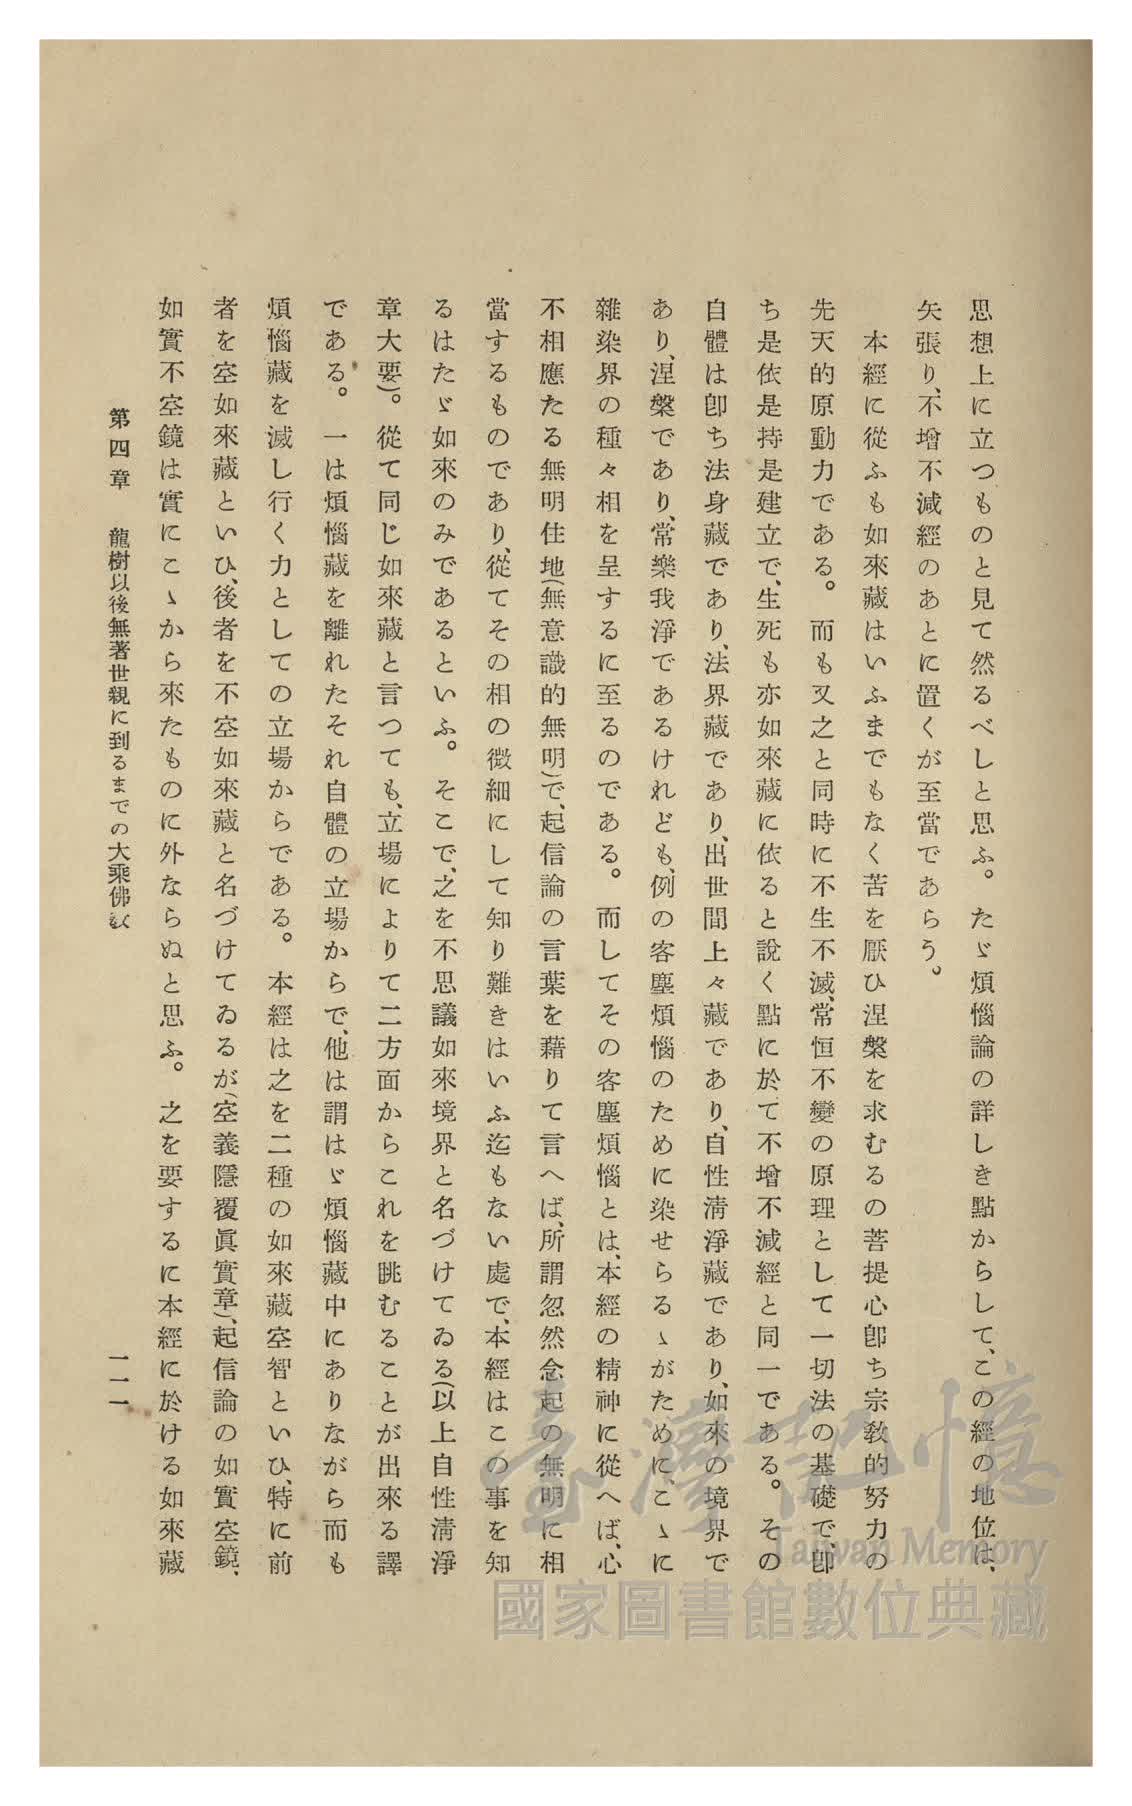 思想上に立つものと見て然るべしと思ふ。たゞ煩惱論の詳しき點からして、この經の地位は、
矢張り、不增不減經のあとに置くが至當であらう。
本經に從ふも如來藏はいふまでもなく苦を厭ひ涅槃を求むるの菩提心卽ち宗敎的努力の
先天的原動力である。而も又之と同時に不生不滅、常恒不變の原理として一切法の基礎で、卽
ち是依是持是建立で、生死も亦如來藏に依ると說く點に於て不增不減經と同一である。その
自體は卽ち法身藏であり、法界藏であり、出世間上々藏であり、自性淸淨藏であり、如來の境界で
あり、涅槃であり、常樂我淨であるけれども、例の客塵煩惱のために染せらるゝがために、こゝに
雜染界の種々相を呈するに至るのである。而してその客塵煩惱とは、本經の精神に從へば、心
不相應たる無明住地(無意識的無明)で、起信論の言葉を藉りて言へば、所謂忽然念起の無明に相
當するものであり、從てその相の微細にして知り難きはいふ迄もない處で、本經はこの事を知
るはたゞ如來のみであるといふ。そこで、之を不思議如來境界と名づけてゐる(以上自性淸淨
章大要)。從て同じ如來藏と言つても、立場によりて二方面からこれを眺むることが出來る譯
である。一は煩惱藏を離れたそれ自體の立場からで、他は謂はゞ煩惱藏中にありながら而も
煩惱藏を滅し行く力としての立場からである。本經は之を二種の如來藏空智といひ、特に前
者を空如來藏といひ、後者を不空如來藏と名づけてゐるが(空義隱覆眞實章)、起信論の如實空鏡、
如實不空鏡は實にこゝから來たものに外ならぬと思ふ。之を要するに本經に於ける如來藏
第四章 龍樹以後無著世親に到るまでの大乘佛敎
一一一
臺灣記憶
Taiwan Memory
國家圖書館數位典藏